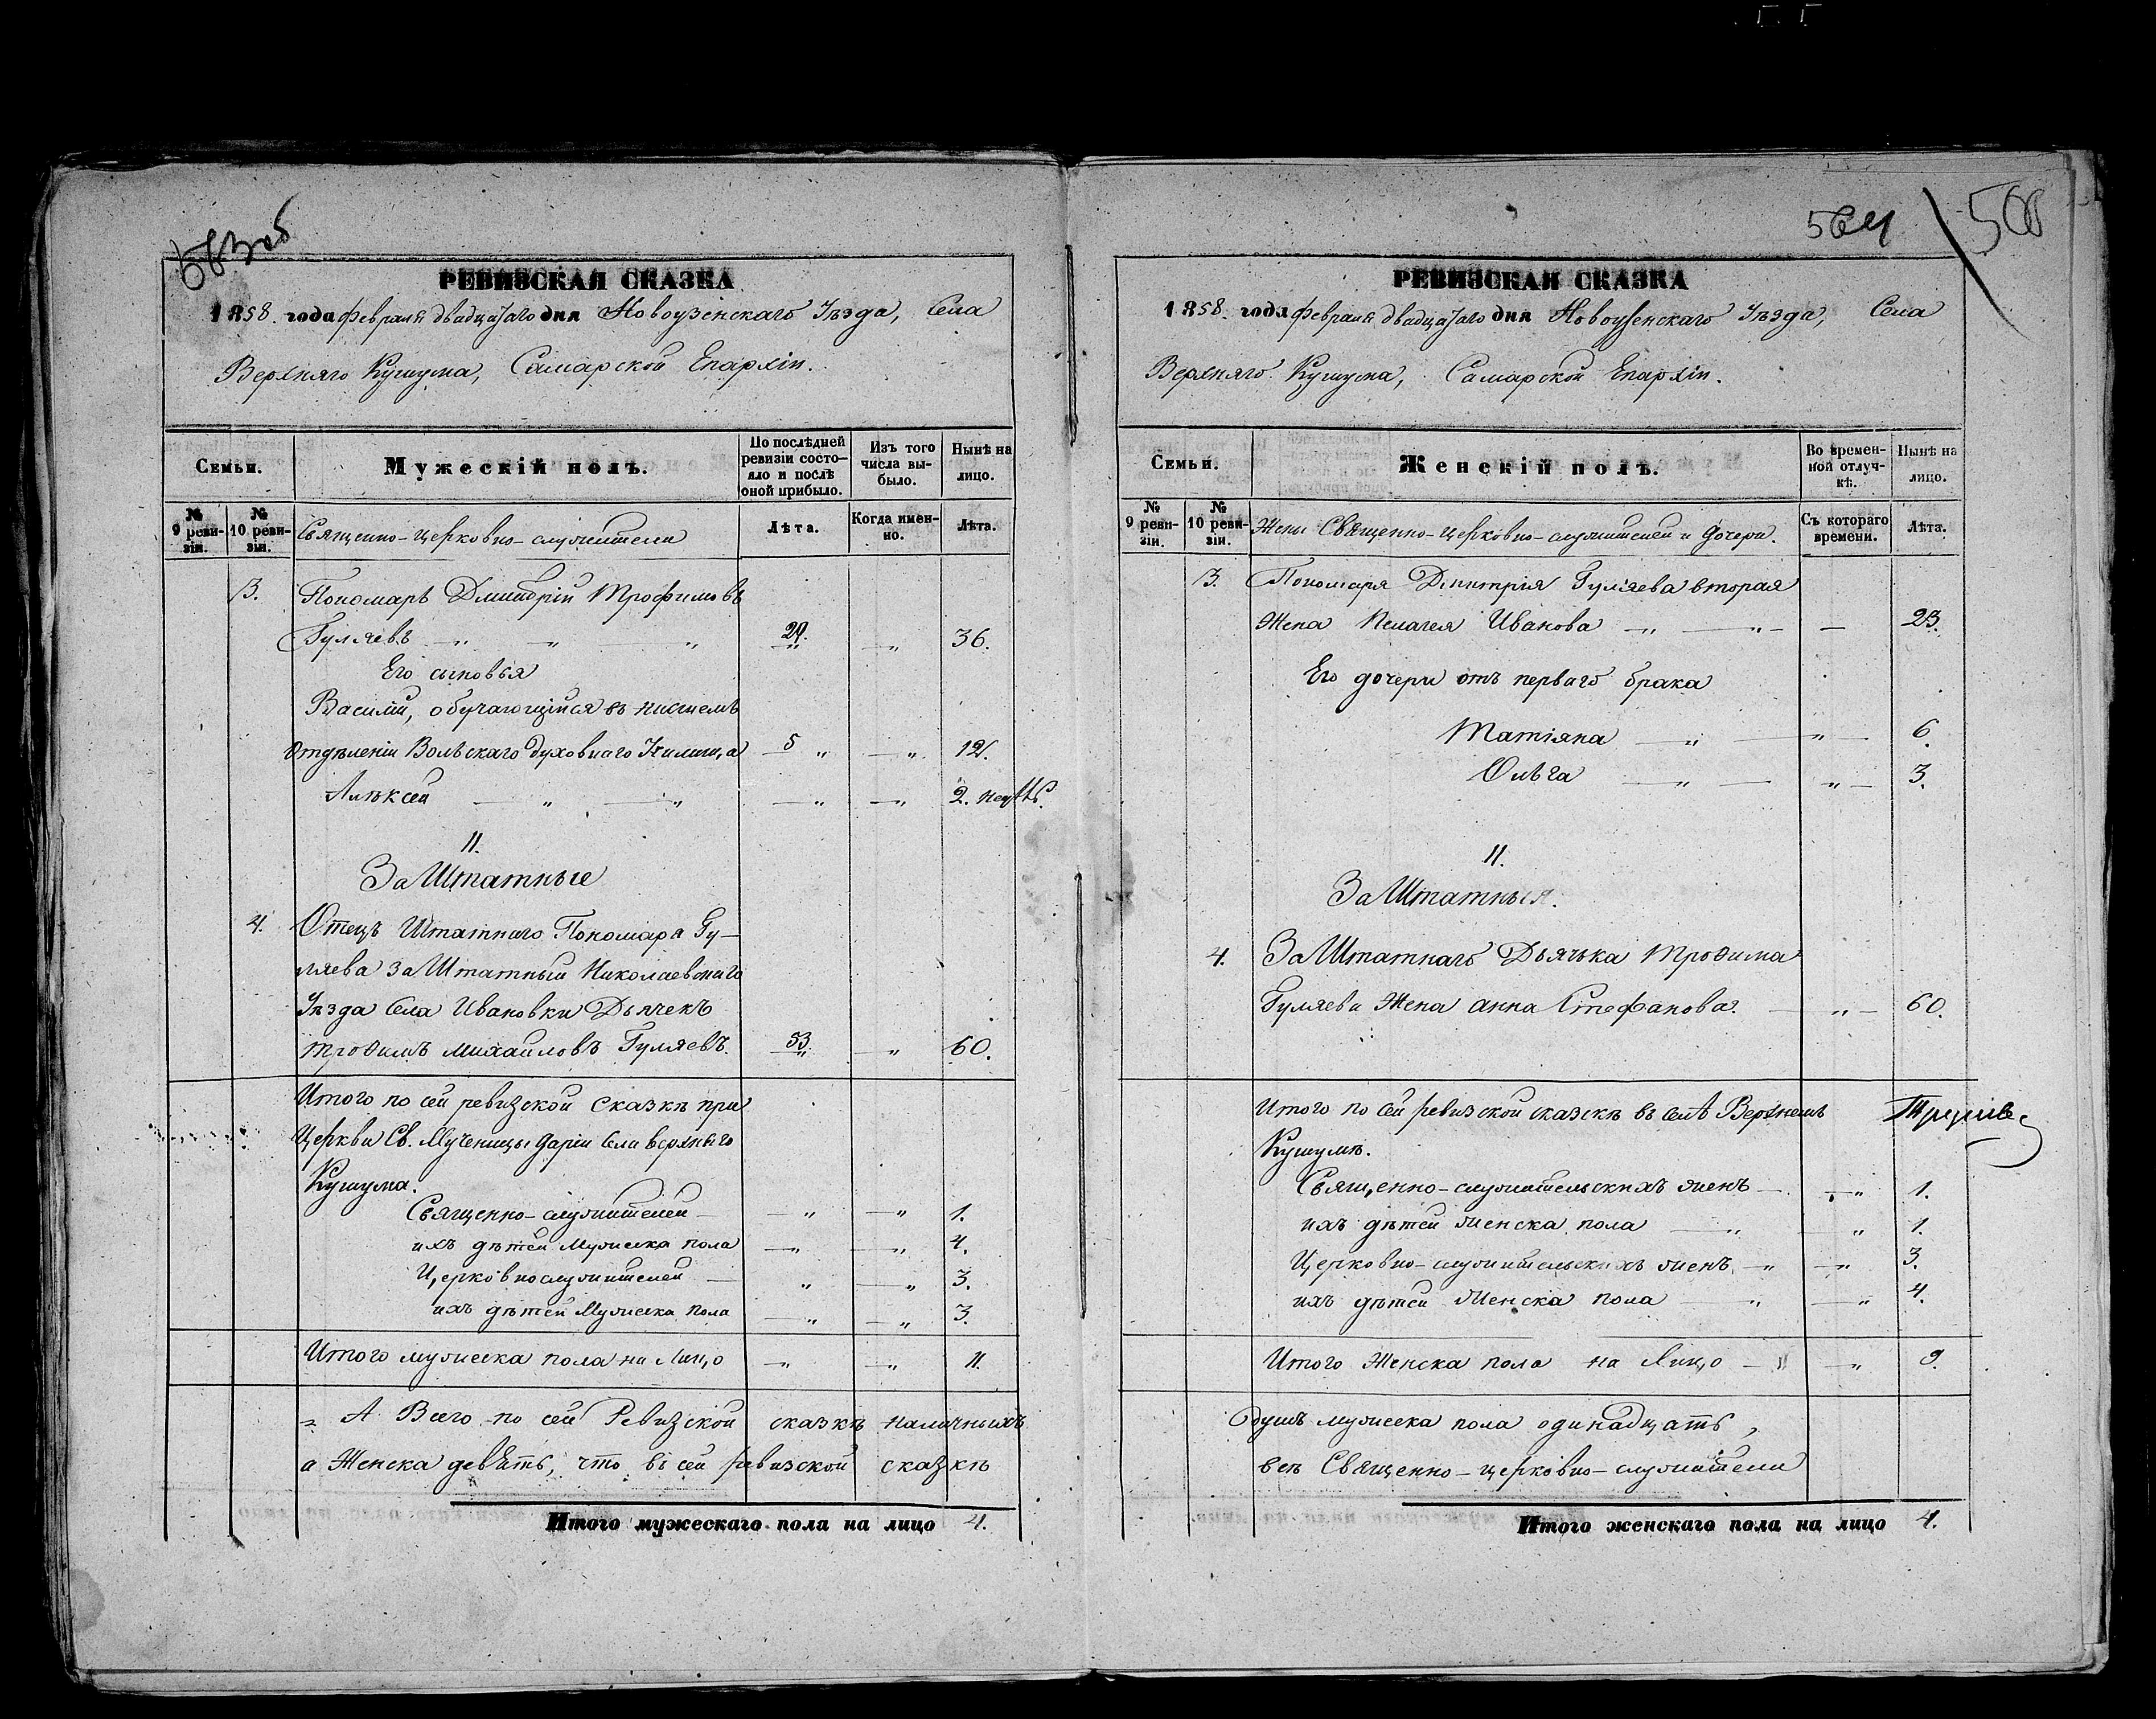 563 об
РЕВИЗСКАЯ СКАЗКА
1858. года февраля двадцатаго дня Новоузенскаго Уѣзда, Села
Верхняго Кушума, Самарской Епархіи.
Семьи.
Мужескій полъ.
По послѣдней ревизіи состо-
яло и послѣ
оной прибыло.
Изъ того
числа вы-
было.
Нынѣ на
лицо.
№ 9 реви-
зіи.
№ 10 реви-
зіи.
Священно-церковно-служители
Лѣта.
Когда имен-
но.
Лѣта.
3. Пономарь Дмитрій Трофимовъ
Гуляевъ — „ — „ — „ 29. — „ 36.
Его сыновья
Василій, обучающійся въ низшемъ
отдѣленіи Вольскаго духовнаго Училища — 5 „ — „ 12.
Алѣксей — „ — „ — „ — „ 2. нед.
II.
ЗаШтатные
4. Отецъ Штатнаго Пономаря Гу-
ляева ЗаШтатный Николаевскаго
Уѣзда Села Ивановки Дьячекъ
Трофимъ Михаиловъ Гуляевъ. 53. — „ 60.
Итого по сей ревизской Сказкѣ при
Церкви Св. Мученицы Даріи Села Верхняго
Кушума.
Священно-служителей — — „ — „ 1.
ихъ дѣтей Мужеска пола — „ — „ 4.
Церковнослужителей — „ — „ 3.
ихъ дѣтей Мужеска пола — „ — „ 3.
Итого мужеска пола на Лицо — „ — „ 11.
А Всего по сей Ревизской сказкѣ наличныхъ
а Женска девять, что въ сей ревизской сказкѣ
Итого мужескаго пола на лицо 4.
564
РЕВИЗСКАЯ СКАЗКА
1858. года февраля двадцатаго дня Новоузенскаго Уѣзда, Села
Верхняго Кушума, Самарской Епархіи.
Семьи.
Женскій полъ.
Во времен-
ной отлуч-
кѣ.
Нынѣ на
лицо.
№ 9 реви-
зіи.
№ 10 реви-
зіи.
Жены Священно-церковно-служителей и дочери.
Съ котораго
времени.
Лѣта.
3. Пономаря Димитрія Гуляева вторая
Жена Пелагея Иванова — „ — „ — — 23.
Его дочери отъ перваго брака
Татіяна — „ — „ — 6.
Ольга — „ — „ — 3.
II.
ЗаШтатныя.
4. ЗаШтатнаго Дьячька Трофима
Гуляева Жена Анна Стефанова. — „ — 60.
Итого по сей ревизской сказкѣ въ селѣ Верхнемъ
Кушумѣ.
Священно-служительскихъ женъ — „ 1.
ихъ дѣтей Женска пола — „ „ 1.
Церковно-служительскихъ женъ — „ — „ 3.
ихъ дѣтей Женска пола — „ — „ 4.
Итого Женска пола на Лицо — „ — „ 9.
душъ мужеска пола одинадцать,
всѣ Священно-церковно-служители
Итого женскаго пола на лицо 4.